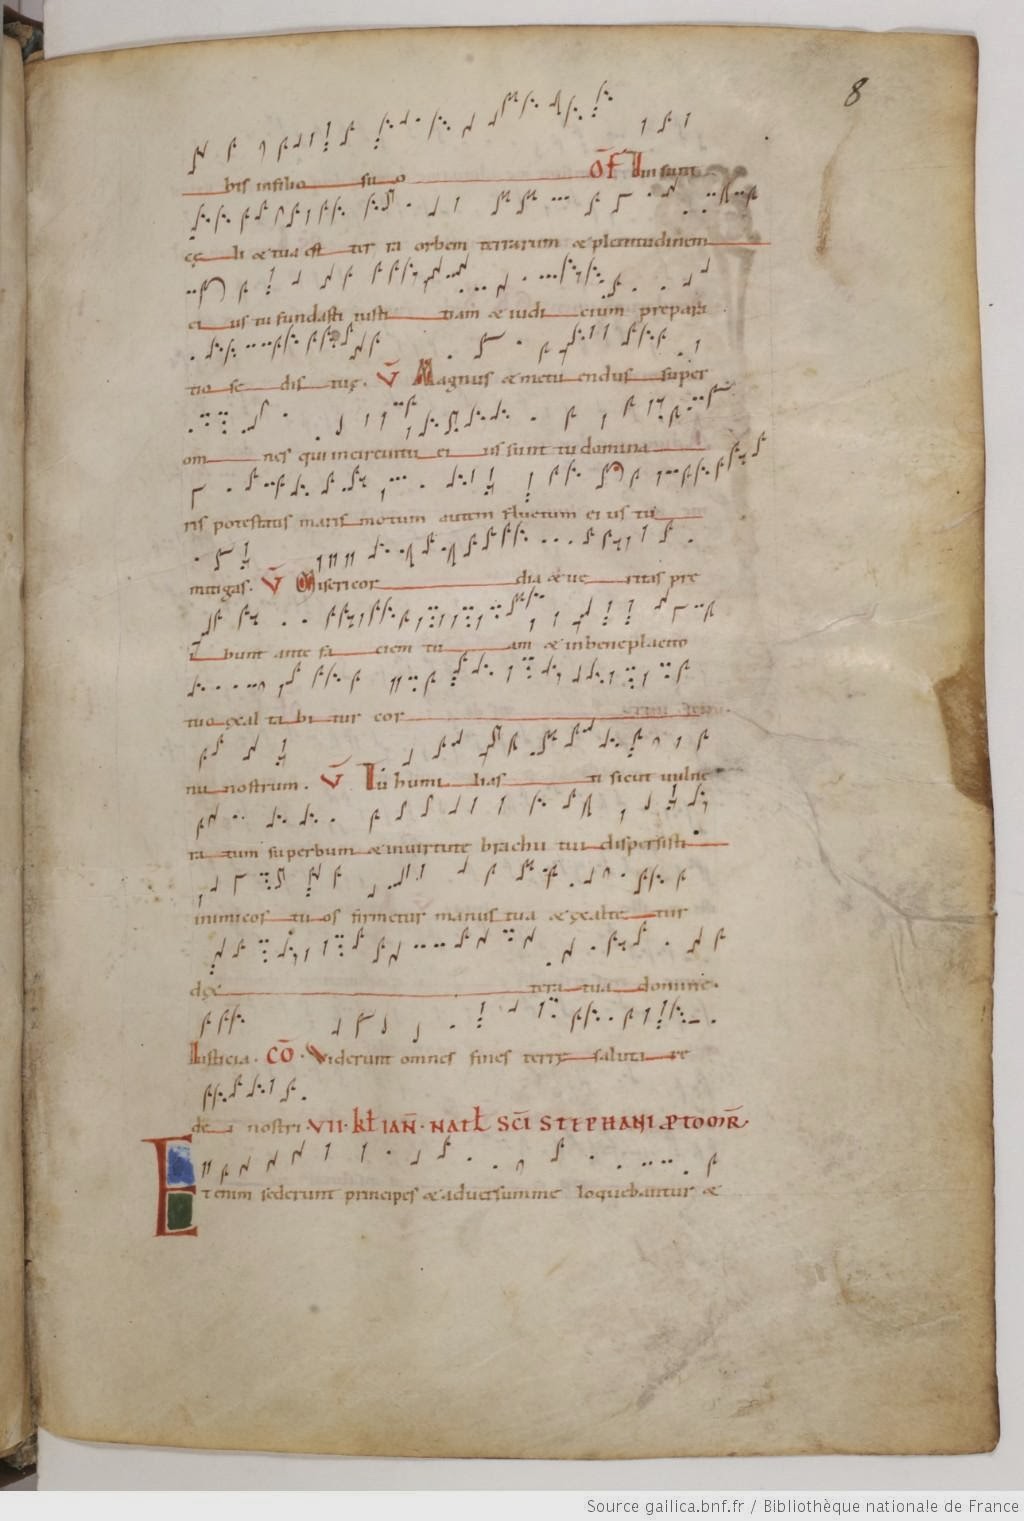 8
bis infilio su o OF Tui sunt
cę li & tua est ter ra orbem terrarum & plenitudinem
ei us tu fundasti iusti tiam & iudi cium prepara
tio se dis tuę. V Magnus & metu endus super
om nes qui in circuitu ei us sunt tu domina
ris potestatis maris motum autem fluctum ei us tu
mitigas. V Misericor dia & ue ritas pre
I bunt ante fa ciem tu am & inbeneplacito
tuo ęxal ta bi tur cor
nu nostrum. V Tu humi lias ti sicut uulne
ra tum superbum & inuirtute brachii tui dispersisti
inimicos tu os firmetur manus tua & ęxalte tur
dęx tera tua domine.
Iusticia. CŌ. Viderunt omnes fines terrę saluta re
dē i nostri. VII. kł IAN̄. NATL SC̄I STEPHANI PTOMR̄.
E tenim sederunt principes & aduersumme loquebantur &
Source gallica.bnf.fr / Bibliothèque nationale de France